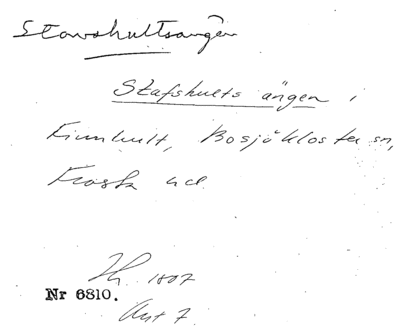 Stavshultsängen
Stafshults ängen i
Finnhult, Bosjökloster sn,
Frosta hd.
1807
Nr 6810.
Akt 7